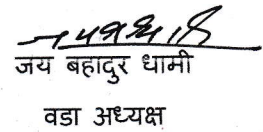 जय बहादुर धामी
वडा अध्यक्ष